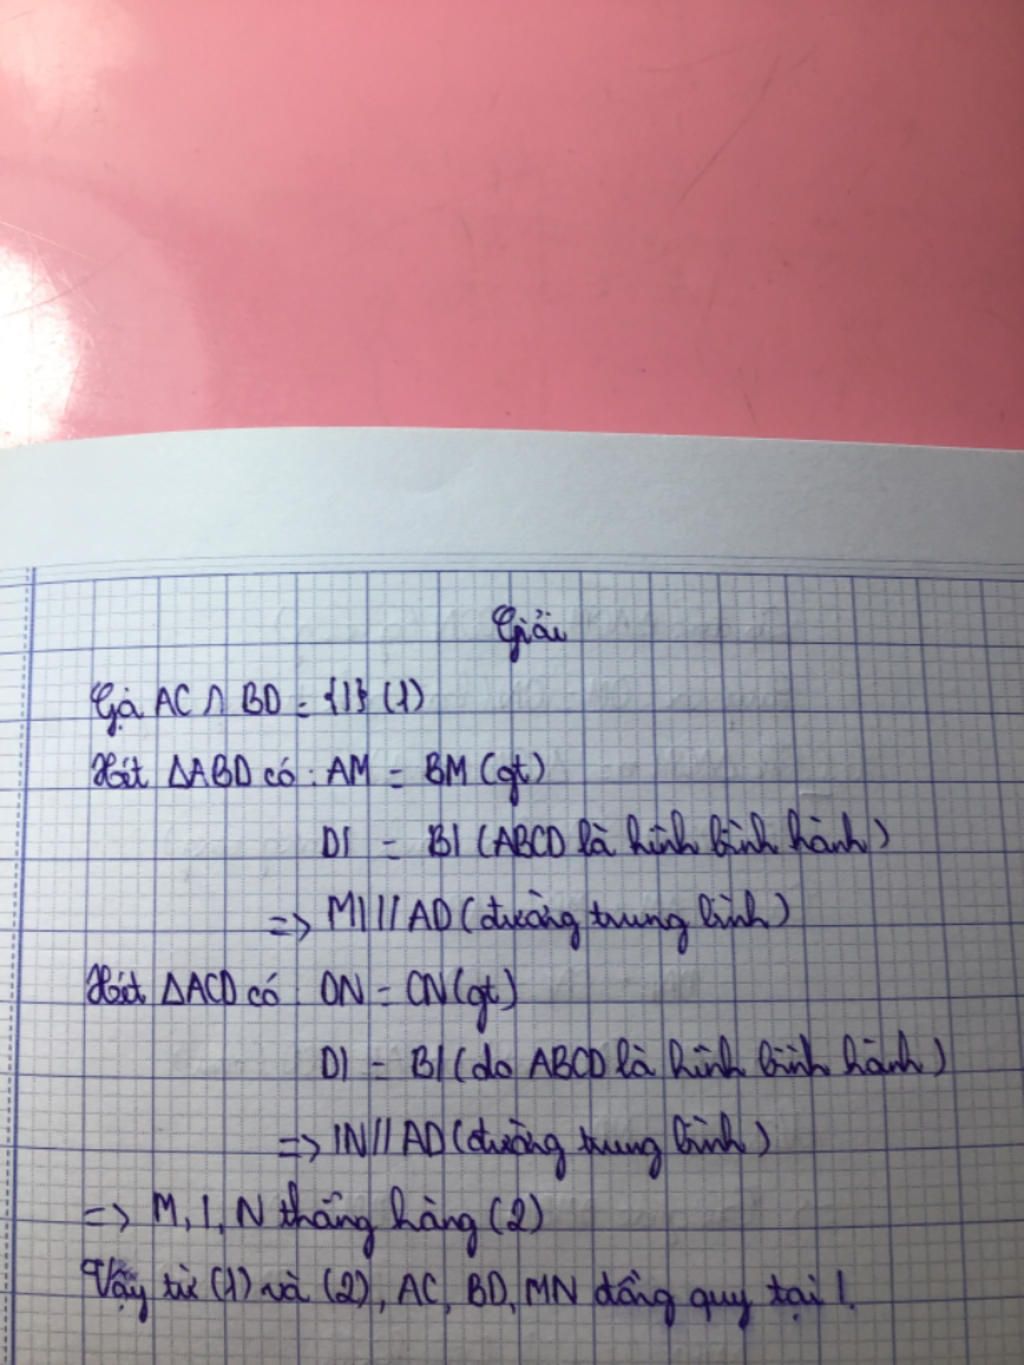 Giải
Gọi AC ∩ BD = {I} (1)
Xét ΔABD có: AM = BM (gt)
DI = BI (ABCD là hình bình hành)
=> MI // AD (đường trung bình)
Xét ΔACD có: DN = CN (gt)
DI = BI (do ABCD là hình bình hành)
=> IN // AD (đường trung bình)
=> M, I, N thẳng hàng (2)
Vậy từ (1) và (2), AC, BD, MN đồng quy tại I.